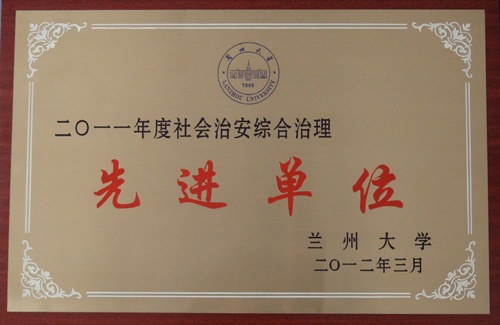 兰州大学
1909
LANZHOU UNIVERSITY
二〇一一年度社会治安综合治理
先进单位
兰州大学
二〇一二年三月